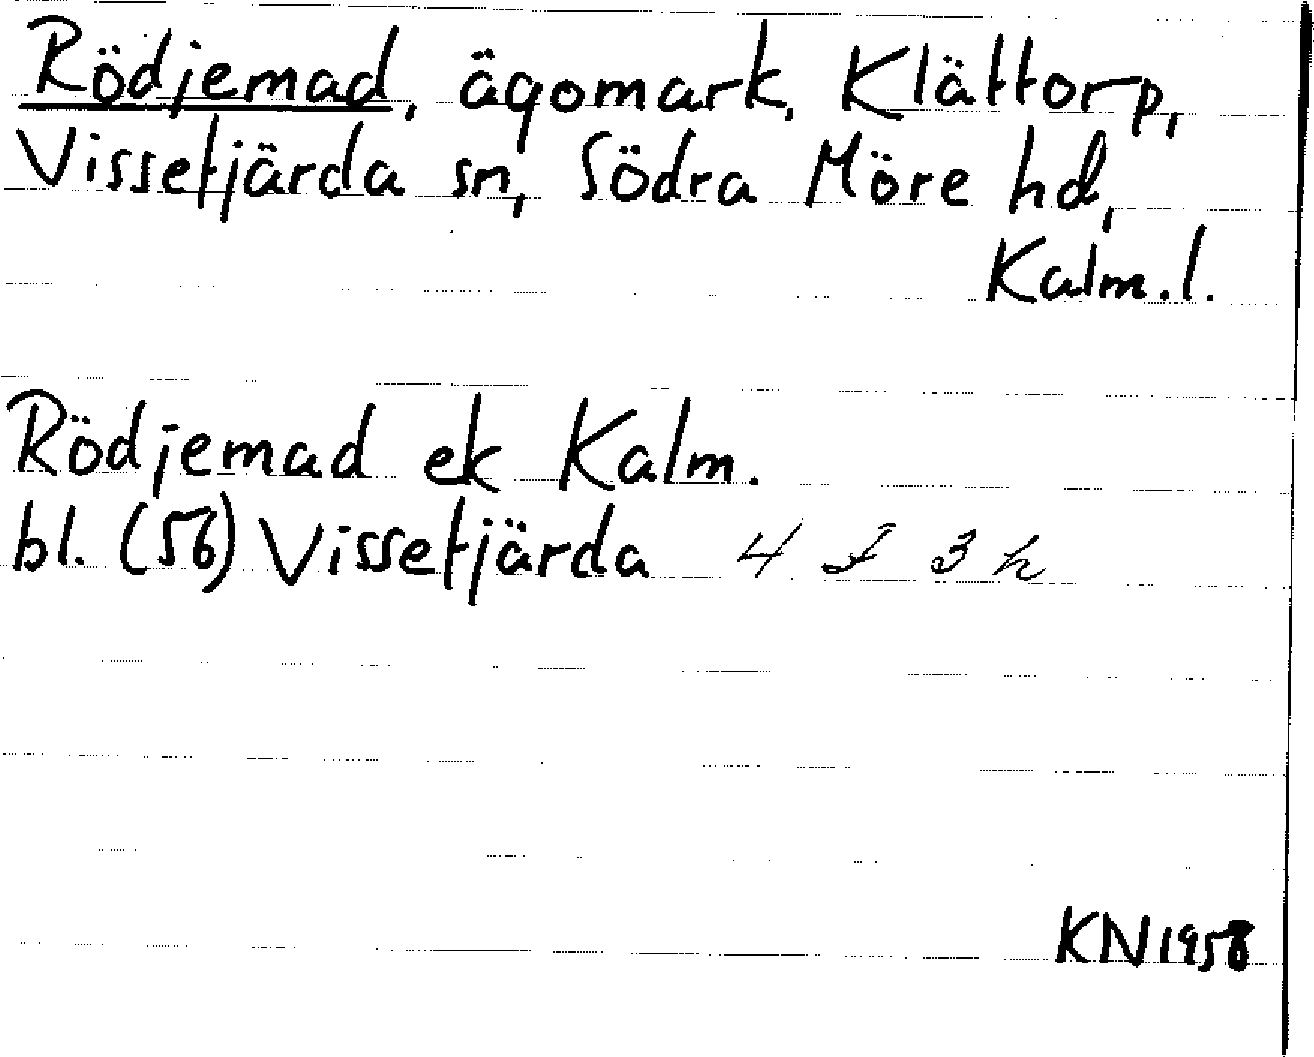 Rödjemad, ägomark, Klättorp,
Vissefjärda sn, Södra Möre hd,
Kalm.l.
Rödjemad ek Kalm.
bl. (56) Vissefjärda 4 F 3 h
KN 1958